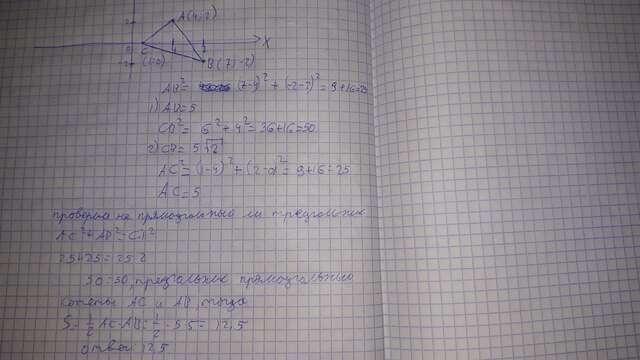 2
A(4,2)
0
C
X
-2
B(7,-2)
AB² = (7-4)² + (-2-2)² = 9+16=25
1) AB=5
CB² = 6² + 4² = 36+16=50
2) CB = 5√2
AC² = (1-4)² + (2-0)² = 9+16=25
AC=5
проверим на прямоугольный ли треугольник
AC²+AB²=CB²
25+25=25·2
50=50, треугольник прямоугольный
катеты AC и AB, тогда
S=½AC·AB=½·5·5=12,5
ответ 12,5